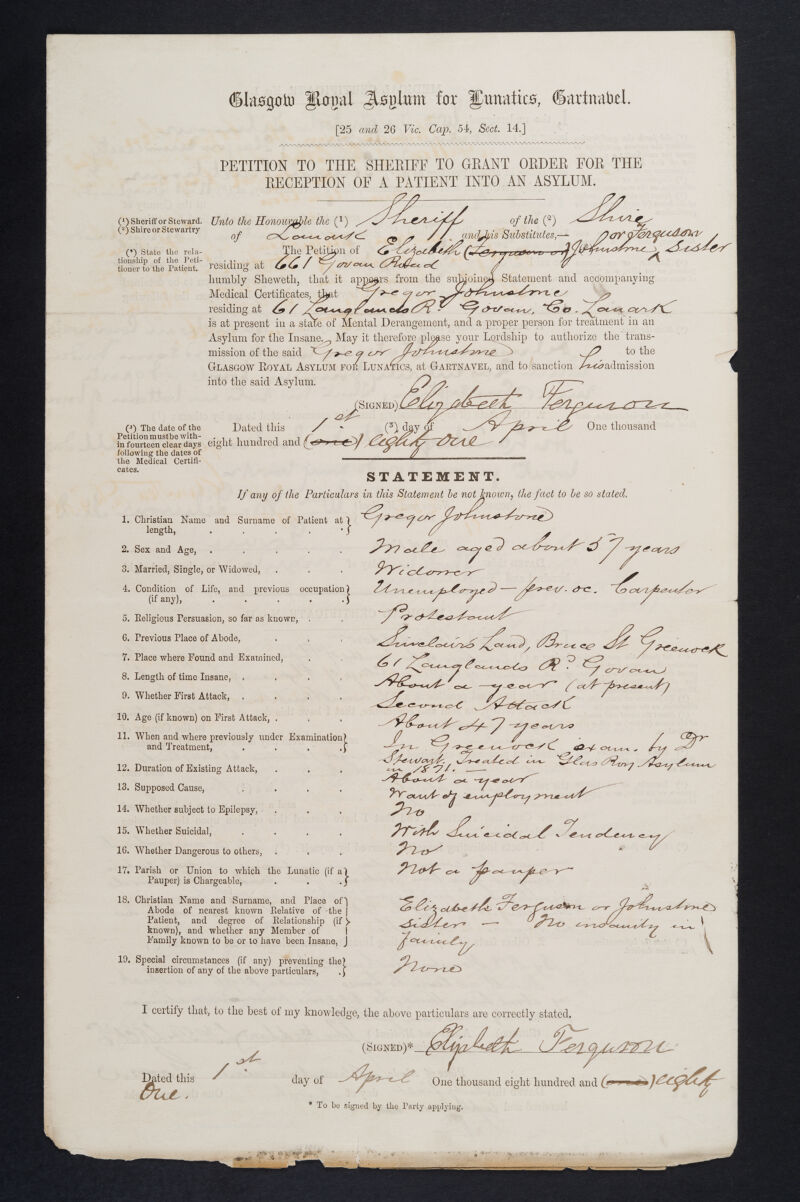 Glasgow Royal Asylum for Lunatics, Gartnavel.
[25 and 26 Vic. Cap. 54, Sect. 14.]
PETITION TO THE SHERIFF TO GRANT ORDER FOR THE
RECEPTION OF A PATIENT INTO AN ASYLUM.
(1) Sheriff or Steward.
(2) Shire or Stewartry
Unto the Honourable the (1) Sheriff of the (2) Shire
of Lanark and his Substitutes,— or Ferguson
(*) State the rela-
tionship of the Peti-
tioner to the Patient.
The Petition of Elizabeth (Ferguson or) Johnstone, Sister
residing at 661 Govan Road
humbly Sheweth, that it appears from the subjoined Statement and accompanying
Medical Certificates, that Gregor Johnstone
residing at 61 Langlands Rd. Govan, Co. Lanark
is at present in a state of Mental Derangement, and a proper person for treatment in an
Asylum for the Insane. May it therefore please your Lordship to authorize the trans-
mission of the said Gregor Johnstone to the
GLASGOW ROYAL ASYLUM FOR LUNATICS, at GARTNAVEL, and to sanction his admission
into the said Asylum.
(SIGNED) Elizabeth Ferguson
(3) The date of the
Petition must be with-
in fourteen clear days
following the dates of
the Medical Certifi-
cates.
Dated this 1st (3) day of April One thousand
eight hundred and (one) eighty one
STATEMENT.
If any of the Particulars in this Statement be not known, the fact to be so stated.
1. Christian Name and Surname of Patient at
length, Gregor Johnstone
2. Sex and Age, Male aged about 57 years
3. Married, Single, or Widowed, Widower
4. Condition of Life, and previous occupation
(if any), Unemployed — prev. oc. Carpenter
5. Religious Persuasion, so far as known, Protestant
6. Previous Place of Abode, Sinclair's Land, Bruce St Greenock
7. Place where Found and Examined, 61 Langlands Rd. Govan
8. Length of time Insane, About a year (at present)
9. Whether First Attack, Second Attack
10. Age (if known) on First Attack, About 47 years
11. When and where previously under Examination
and Treatment, In Greenock exam. by Dr
Stewart. Treated in Glas Roy Asylum
in 1871.
12. Duration of Existing Attack, About a year
13. Supposed Cause, Want of employment
14. Whether subject to Epilepsy, No
15. Whether Suicidal, With Suicidal Tendency
16. Whether Dangerous to others, No
17. Parish or Union to which the Lunatic (if a
Pauper) is Chargeable, Not a pauper
18. Christian Name and Surname, and Place of
Abode of nearest known Relative of the
Patient, and degree of Relationship (if
known), and whether any Member of
Family known to be or to have been Insane,
Elizabeth Ferguson or Johnstone
Sister — No insanity in
family
19. Special circumstances (if any) preventing the
insertion of any of the above particulars, None
I certify that, to the best of my knowledge, the above particulars are correctly stated.
(SIGNED)* Elizabeth Ferguson
Dated this 1st day of April One thousand eight hundred and (one) eighty
One.
* To be signed by the Party applying.